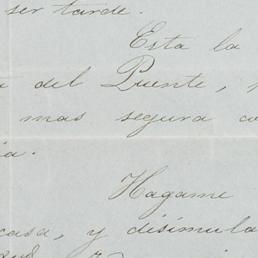 ser tarde.
Esta la
del Puente,
mas segura co
ia.
Hagame
casa, y disimula